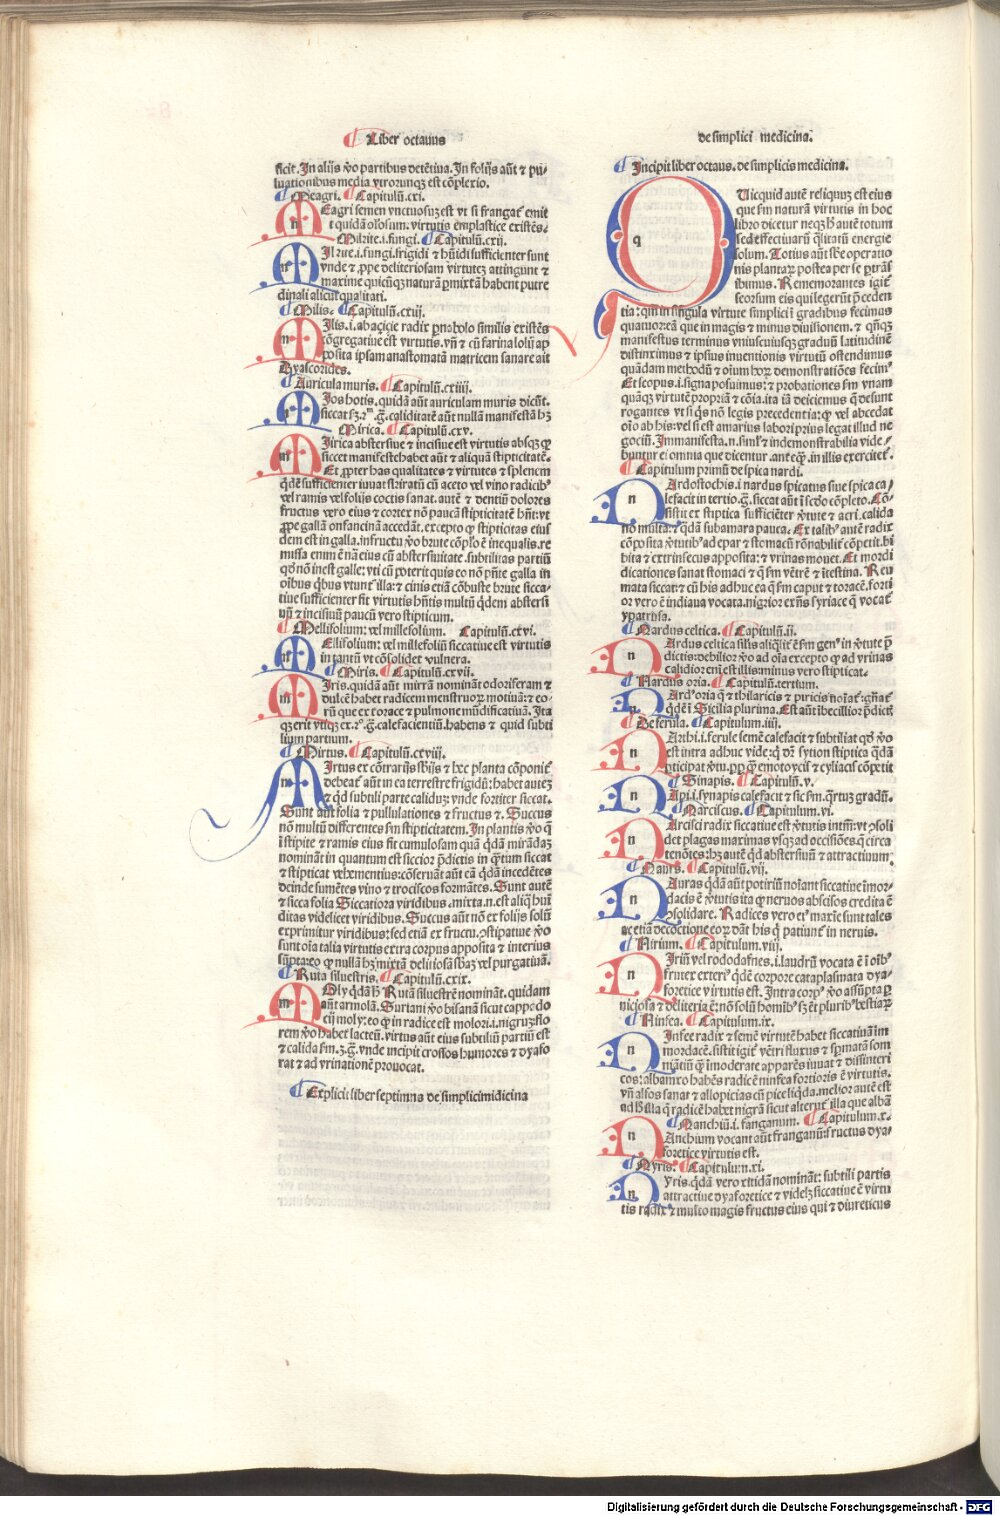 Liber octauus
de simplici medicina.
ficit. In alijs ꝟo partibus detẽtiua. In folijs aũt ⁊ pu/
luationibus media virorunqꝫ est cõplexio.
Meagri. Capitulũ.cxi.
MEagri semen vnctuosuꝫ est vt si frangat᷑ emit
t quidã olosum. virtutis emplastice existẽs.
Milzite.i.fungi. Capitulũ.cxij.
MIlzite.i.fungi.frigidi ⁊ hũidi sufficienter sunt
vnde ⁊ ꝓpe deliteriosam virtuteꝫ attingunt ⁊
maxime quicũqꝫ naturã ꝑmixtã habent putre
dinali alicui qualitati.
Milis. Capitulũ.cxiij.
MIlis.i. radix
cõgregatiue est virtutis. vñ ⁊ cũ farina lolij ap
posita ipsam anastomatã matricem sanare ait
Dyascorides.
Auricula muris. Capitulũ.cxiiij.
MIos hotis. quidã aũt auriculam muris dicũt.
siccat caliditatẽ aũt nullã manifestã hꝫ
Mirica. Capitulũ.cxv.
MIrica abstersiue ⁊ incisiue est virtutis absqꝫ
siccet manifeste habet aũt ⁊ aliquã stipticitatẽ.
Et ꝓpter has qualitates ⁊ virtutes ⁊ splenem
q̃dẽ sufficienter iuuat cũ aceto vel vino
vel ramis vel folijs coctis sanat. autẽ ⁊ dentiũ dolores
fructus vero eius ⁊ cortex nõ paucã stipticitatẽ hñt: vt
gallã onfancinã accedãt. excepto stipticitas eius
dem est in galla. in fructu ꝟo brute est inequalis. re
missa enim est nã eius cũ abstersiuitate. subtilitas partiũ
nõ inest galle: vti cũ poterit quis eo nõ galla in
oĩbus quibus vtunt᷑ illa: ⁊ cinis etiã cõbuste brute sicca/
tiue sufficienter fit virtutis hñtis multũ quidem abstersi
uũ ⁊ incisiuũ paucũ vero stipticum.
Mellifolium: vel millefolium. Capitulũ.cxvi.
MEllifolium: vel millefoliũ siccatiue est virtutis
in tantũ vt cõsolidet vulnera.
Miris. Capitulũ.cxvij.
MIris. quidã aũt mirrã nominãt odoriferam ⁊
dulcẽ habet radicem menstruorum motiuã: ⁊ eo
rũ que ex torace ⁊ pulmone mũdificatiuã. Ita
calefacientiũ. habens ⁊ quid subti
lium partium.
Mirtus. Capitulũ.cxviij.
MIrtus ex cõtrarijs hec planta cõponit᷑
debeat᷑ aũt in ea terrestre frigidũ: habet auteꝫ
⁊ q̃d subtili parte caliduꝫ: vnde fortiter siccat.
Sunt aũt folia ⁊ pullulationes ⁊ fructus ⁊. Succus
nõ multũ differentes fm stipticitatem. In plantis ꝟo
ĩ stipite ⁊ ramis eius fit cumulosam quã q̃dã mirãdaꝫ
nominãt in quantum est siccior p̃dictis in siccat
⁊ stipticat vehementius: cõseruãt aũt eã q̃dã incedẽtes
deinde sumẽtes vino ⁊ trociscos formãtes. Sunt autẽ
⁊ sicca folia Siccatiora viridibus. mixta.n.est hui
ditas videlicet viridibus. Succus aũt nõ ex folijs solũ
exprimitur viridibus: sed etiã ex fructu. ꝟo
sunt oĩa talia virtutis extra corpus apposita ⁊ interius
nullã hꝫ mixtã vel purgatiuã.
Ruta siluestris. Capitulũ.cxix.
MOly q̃dã Rutã siluestrẽ nominãt. quidam
aũt armolã. Suriani ꝟo bisanã sicut cappado
cij moly: eo in radice est molori.i.nigruꝫ: flo
rem ꝟo habet lacteũ. virtus aũt eius subtiliũ partiũ est
⁊ calida fm.3.g̃. vnde incipit crossos humores ⁊ dyafo
rat ⁊ ad vrinationẽ prouocat.
Explicit liber septimus de simplici midicina
Incipit liber octaus. de simplicis medicina.
QUicquid autẽ reliquuꝫ est eius
que fm naturã virtutis in hoc
libro dicetur neqꝫ autẽ totum
sed effectiuarũ q̃litatũ energie
solum. Totius aũt operatio
nis plantarum postea per se
ibimus. Rememorantes igit᷑
seorsum eis qui legerũt p̃ceden
tia: in singula virtute simplici gradibus fecimus
quatuor eã que in magis ⁊ minus diuisionem. ⁊ qñqꝫ
manifestus terminus vniuscuiusqꝫ graduũ latitudinẽ
distinximus ⁊ ipsius inuentionis virtutũ ostendimus
quãdam methodũ ⁊ oĩum demonstratiões
Et scopus.i.signa posuimus: ⁊ probationes fm vnam
quãqꝫ virtutẽ propriã ⁊ cõia. ita iã deicimus desunt
rogantes vt si quis nõ legis precedentia: vel abcedat
oĩo ab his: vel si est amarius laboriosius legat illud ne
gociũ. Immanifesta.n.simul ⁊ indemonstrabilia vide/
buntur ei omnia que dicentur. in illis
Capitulum primũ de spica nardi.
NArdostochis.i nardus spicatus siue spica ca/
lefacit in tertio.g̃.siccat aũt in scdo cõpleto. Cõ/
sistit ex stiptica sufficiẽter ⁊ acri. calida
nõ multa: ⁊ q̃dã subamara pauca. Ex talibus autẽ radix
cõposita ad epar ⁊ stomacũ cõpetit. bi
bita ⁊ extrinsecus apposita: ⁊ vrinas mouet. Et mordi
dicationes sanat stomaci ⁊ fm vẽtrẽ ⁊ ĩtestina. Reu
mata siccat: ⁊ cũ his adhuc ea fm caput ⁊ toracẽ. forti
or vero ẽ indiaua vocata. nigrior syriace vocat᷑
ypatrisa.
Nardus celtica. Capitulũ.ij.
NArdus celtica ẽ fm
dictis: debilior ꝟo ad oĩa excepto ad vrinas
calidior est illis minus vero stipticat.
Nardus oria. Capitulũ.tertium.
NArd' oria ⁊ thilaricis ⁊ piricis
Sicilia plurima. Est aũt ĩbecillior
De ferula. Capitulum.iiij.
NArthi.i.ferule semẽ calefacit ⁊ subtiliat ꝟo
est intra adhuc vide: sytion stiptica q̃dã
emotoycis ⁊ cyliacis cõpetit
Sinapis. Capitulũ.v.
NApi.i.synapis calefacit ⁊ sic fm. graduũ.
Narciscus. Capitulum.vi.
NArcisci radix siccatiue est
det plagas maximas vsqꝫ ad occisiões. circa
tenõtes: hꝫ autẽ q̃d abstersiuũ ⁊ attractiuum
Nauris. Capitulũ.vij.
NAuras q̃dã aũt potiriũ noĩant siccatiue ĩmor/
dacis ẽ ita neruos abscisos credita ẽ
consolidare. Radices vero ei' maxie sunt tales
ac etiã decoctione dãt his patiunt᷑ in neruis.
Nirium. Capitulum.viij.
NIriũ vel rododafnes.i.laudrũ vocata ẽ
frutex exteri' q̃dẽ corpore cataplasmata dya/
foretice virtutis est. Intra ꝟo
niciosa ⁊ deliteria ẽ: nõ solũ ꝫ ẽt plurib'
Ninfea. Capitulum.ix.
NInfee radix ⁊ semẽ virtutẽ habet siccatiuã im
mordacẽ. sistit vẽtri fluxus ⁊ som
imoderate apparẽs iuuat ⁊ dissinteri
cos: alba ꝟo habẽs radicẽ ninfea fortioris ẽ virtutis.
vñ alfos sanat ⁊ allopicias cũ pice liqda. melior autẽ est
ad illa radicẽ habet nigrã sicut illa que albã
Nanchiũ.i. fanganum. Capitulum.x.
NAnchium vocant aũt franganũ: fructus dya/
foretice virtutis est.
Nyris. Capitulum.xi.
NYris. q̃dã vero xitidiã nominãt: subtili partis
attractiue dyaforetice ⁊ siccatiue ẽ virtu
tis radix ⁊ multo magis fructus eius qui ⁊ diureticus
Digitalisierung gefördert durch die Deutsche Forschungsgemeinschaft - DFG